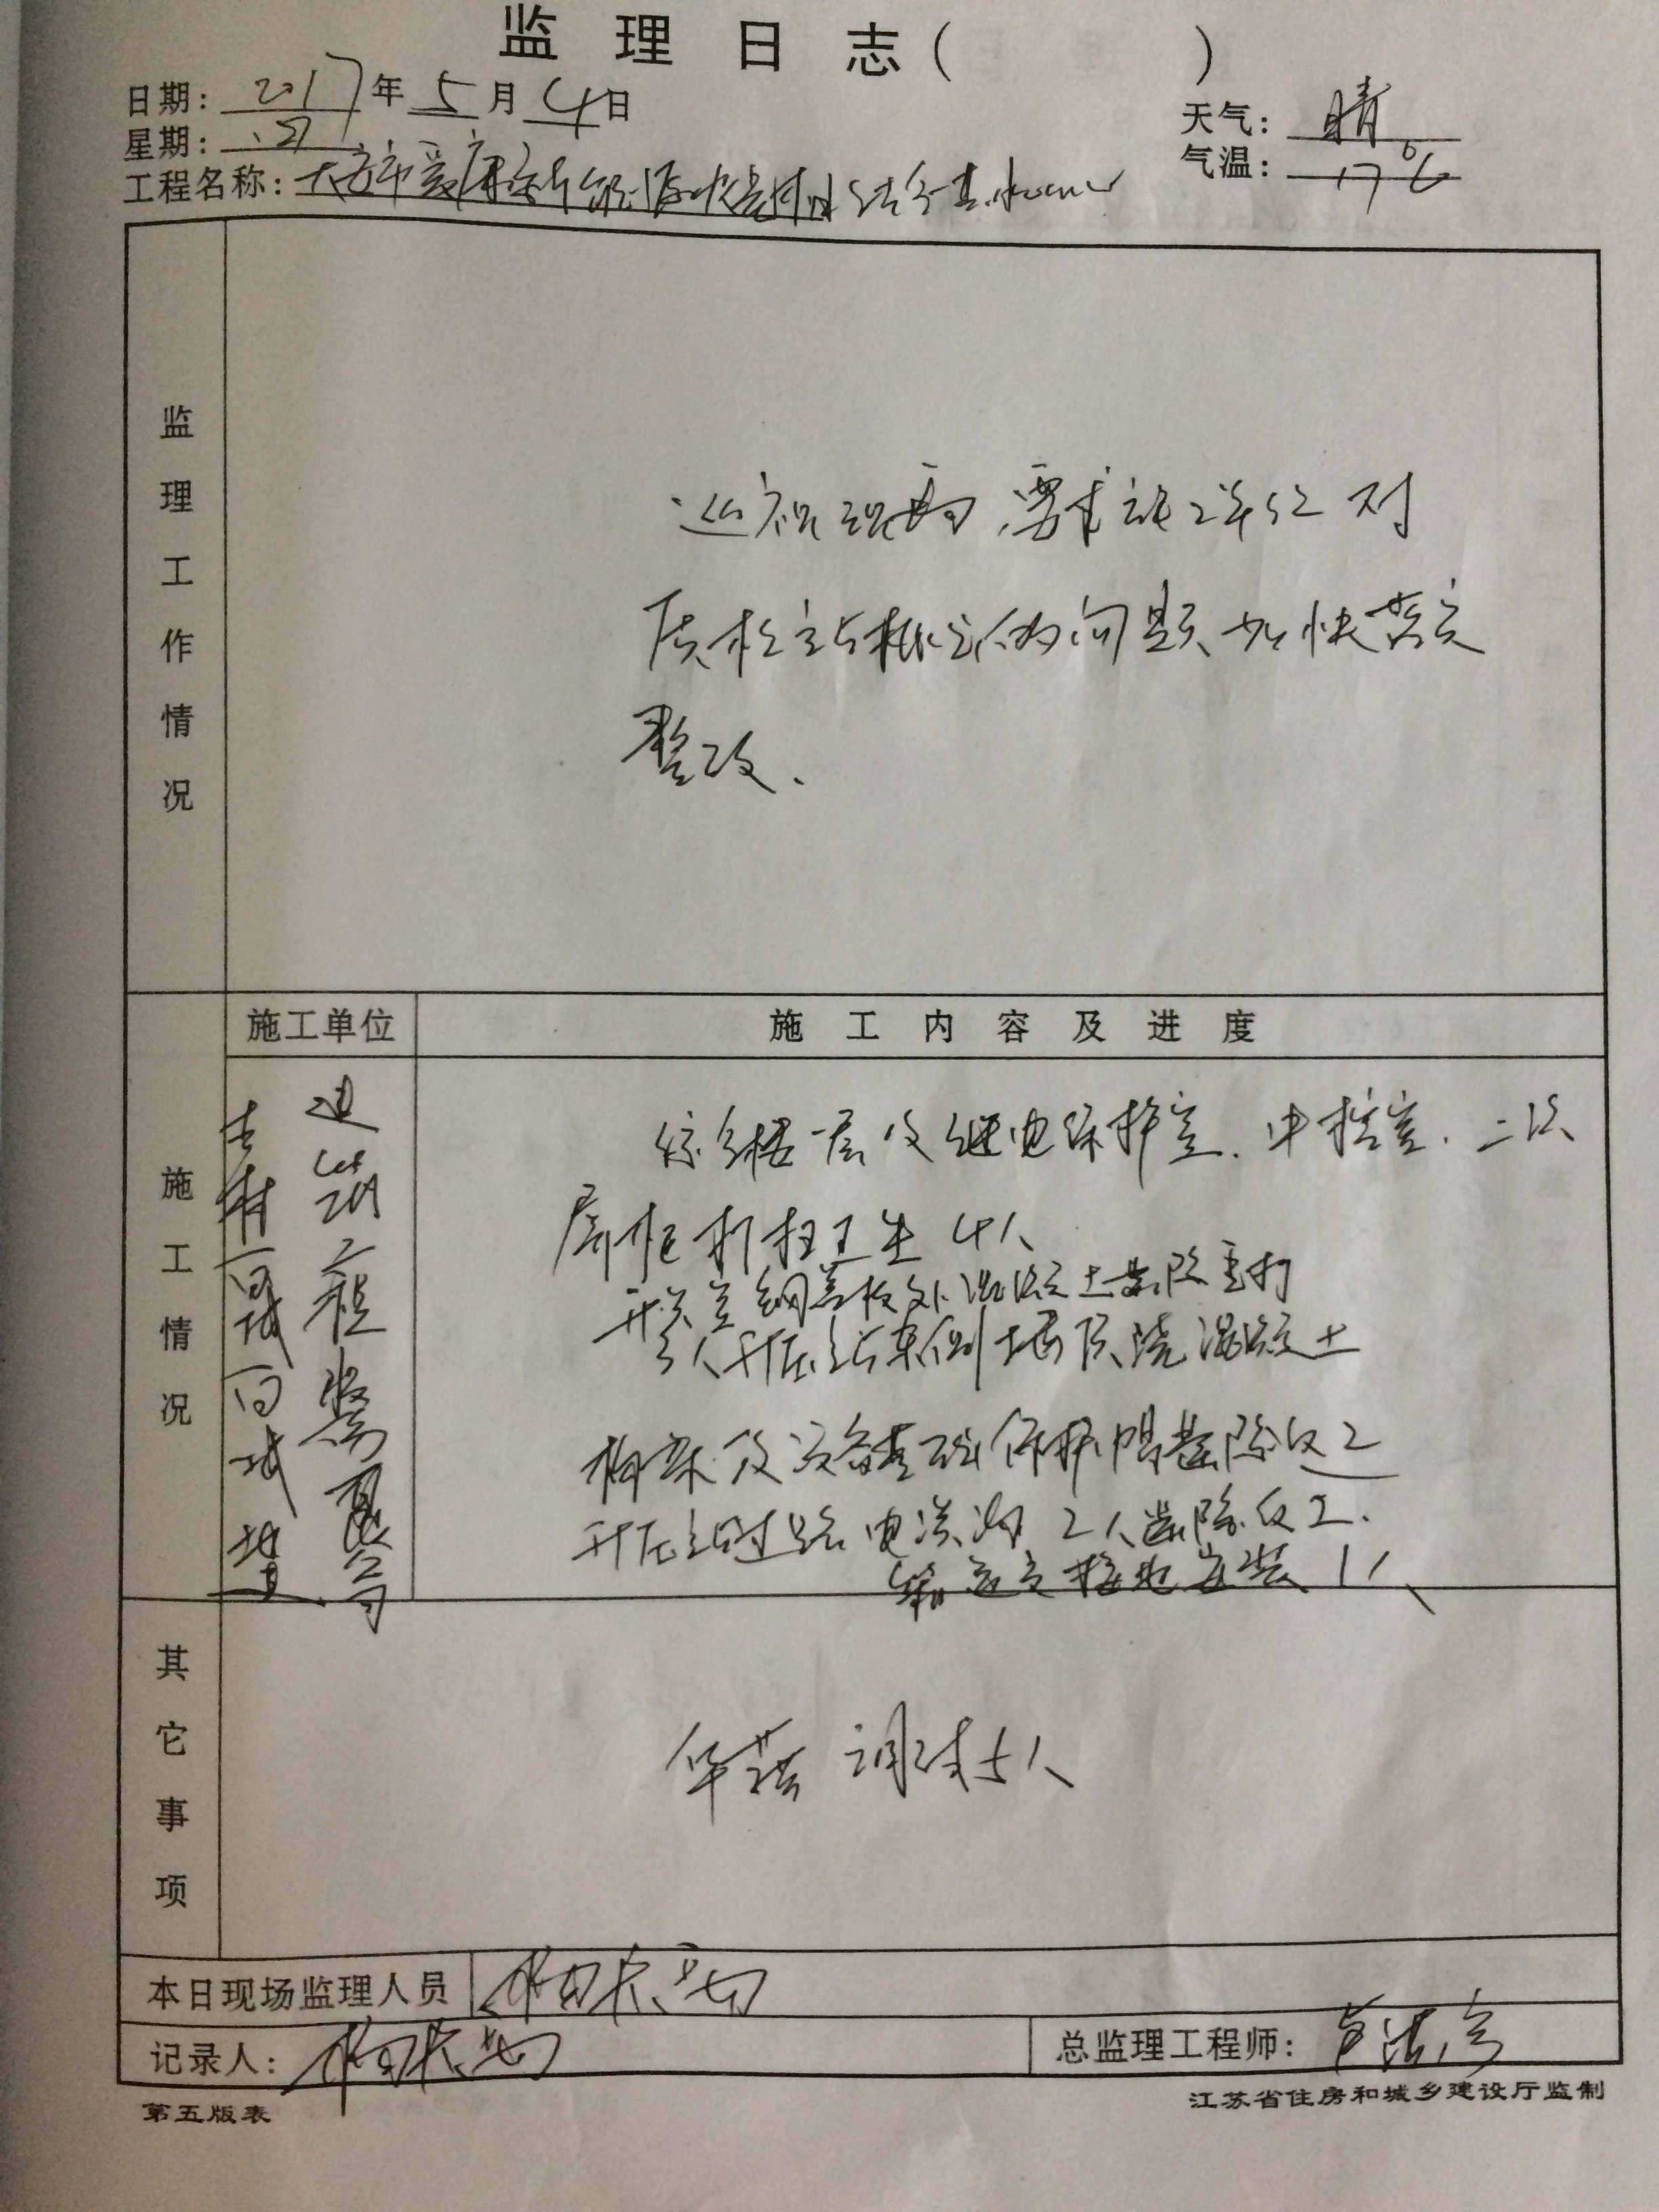 监理日志( )
日期: 2017年5月4日
天气: 晴
星期: 四
气温: 17℃
工程名称: 大安市爱康新能源
监理工作情况
巡视现场,要求施工单位对
质检站提出的问题加快落实
整改、
施工单位
施工内容及进度
施工情况
综合楼一层及继电保护室、中控室、二次
屏柜打扫卫生 4人
开关室钢盖板处混凝土凿除重打
3人升压站东侧堵 浇混凝土
构架及设备基础保护帽凿除返工
升压站过路电缆沟 2人凿除返工.
接地安装 1人
其它事项
华 调试5人
本日现场监理人员
记录人:
总监理工程师:
第五版表
江苏省住房和城乡建设厅监制